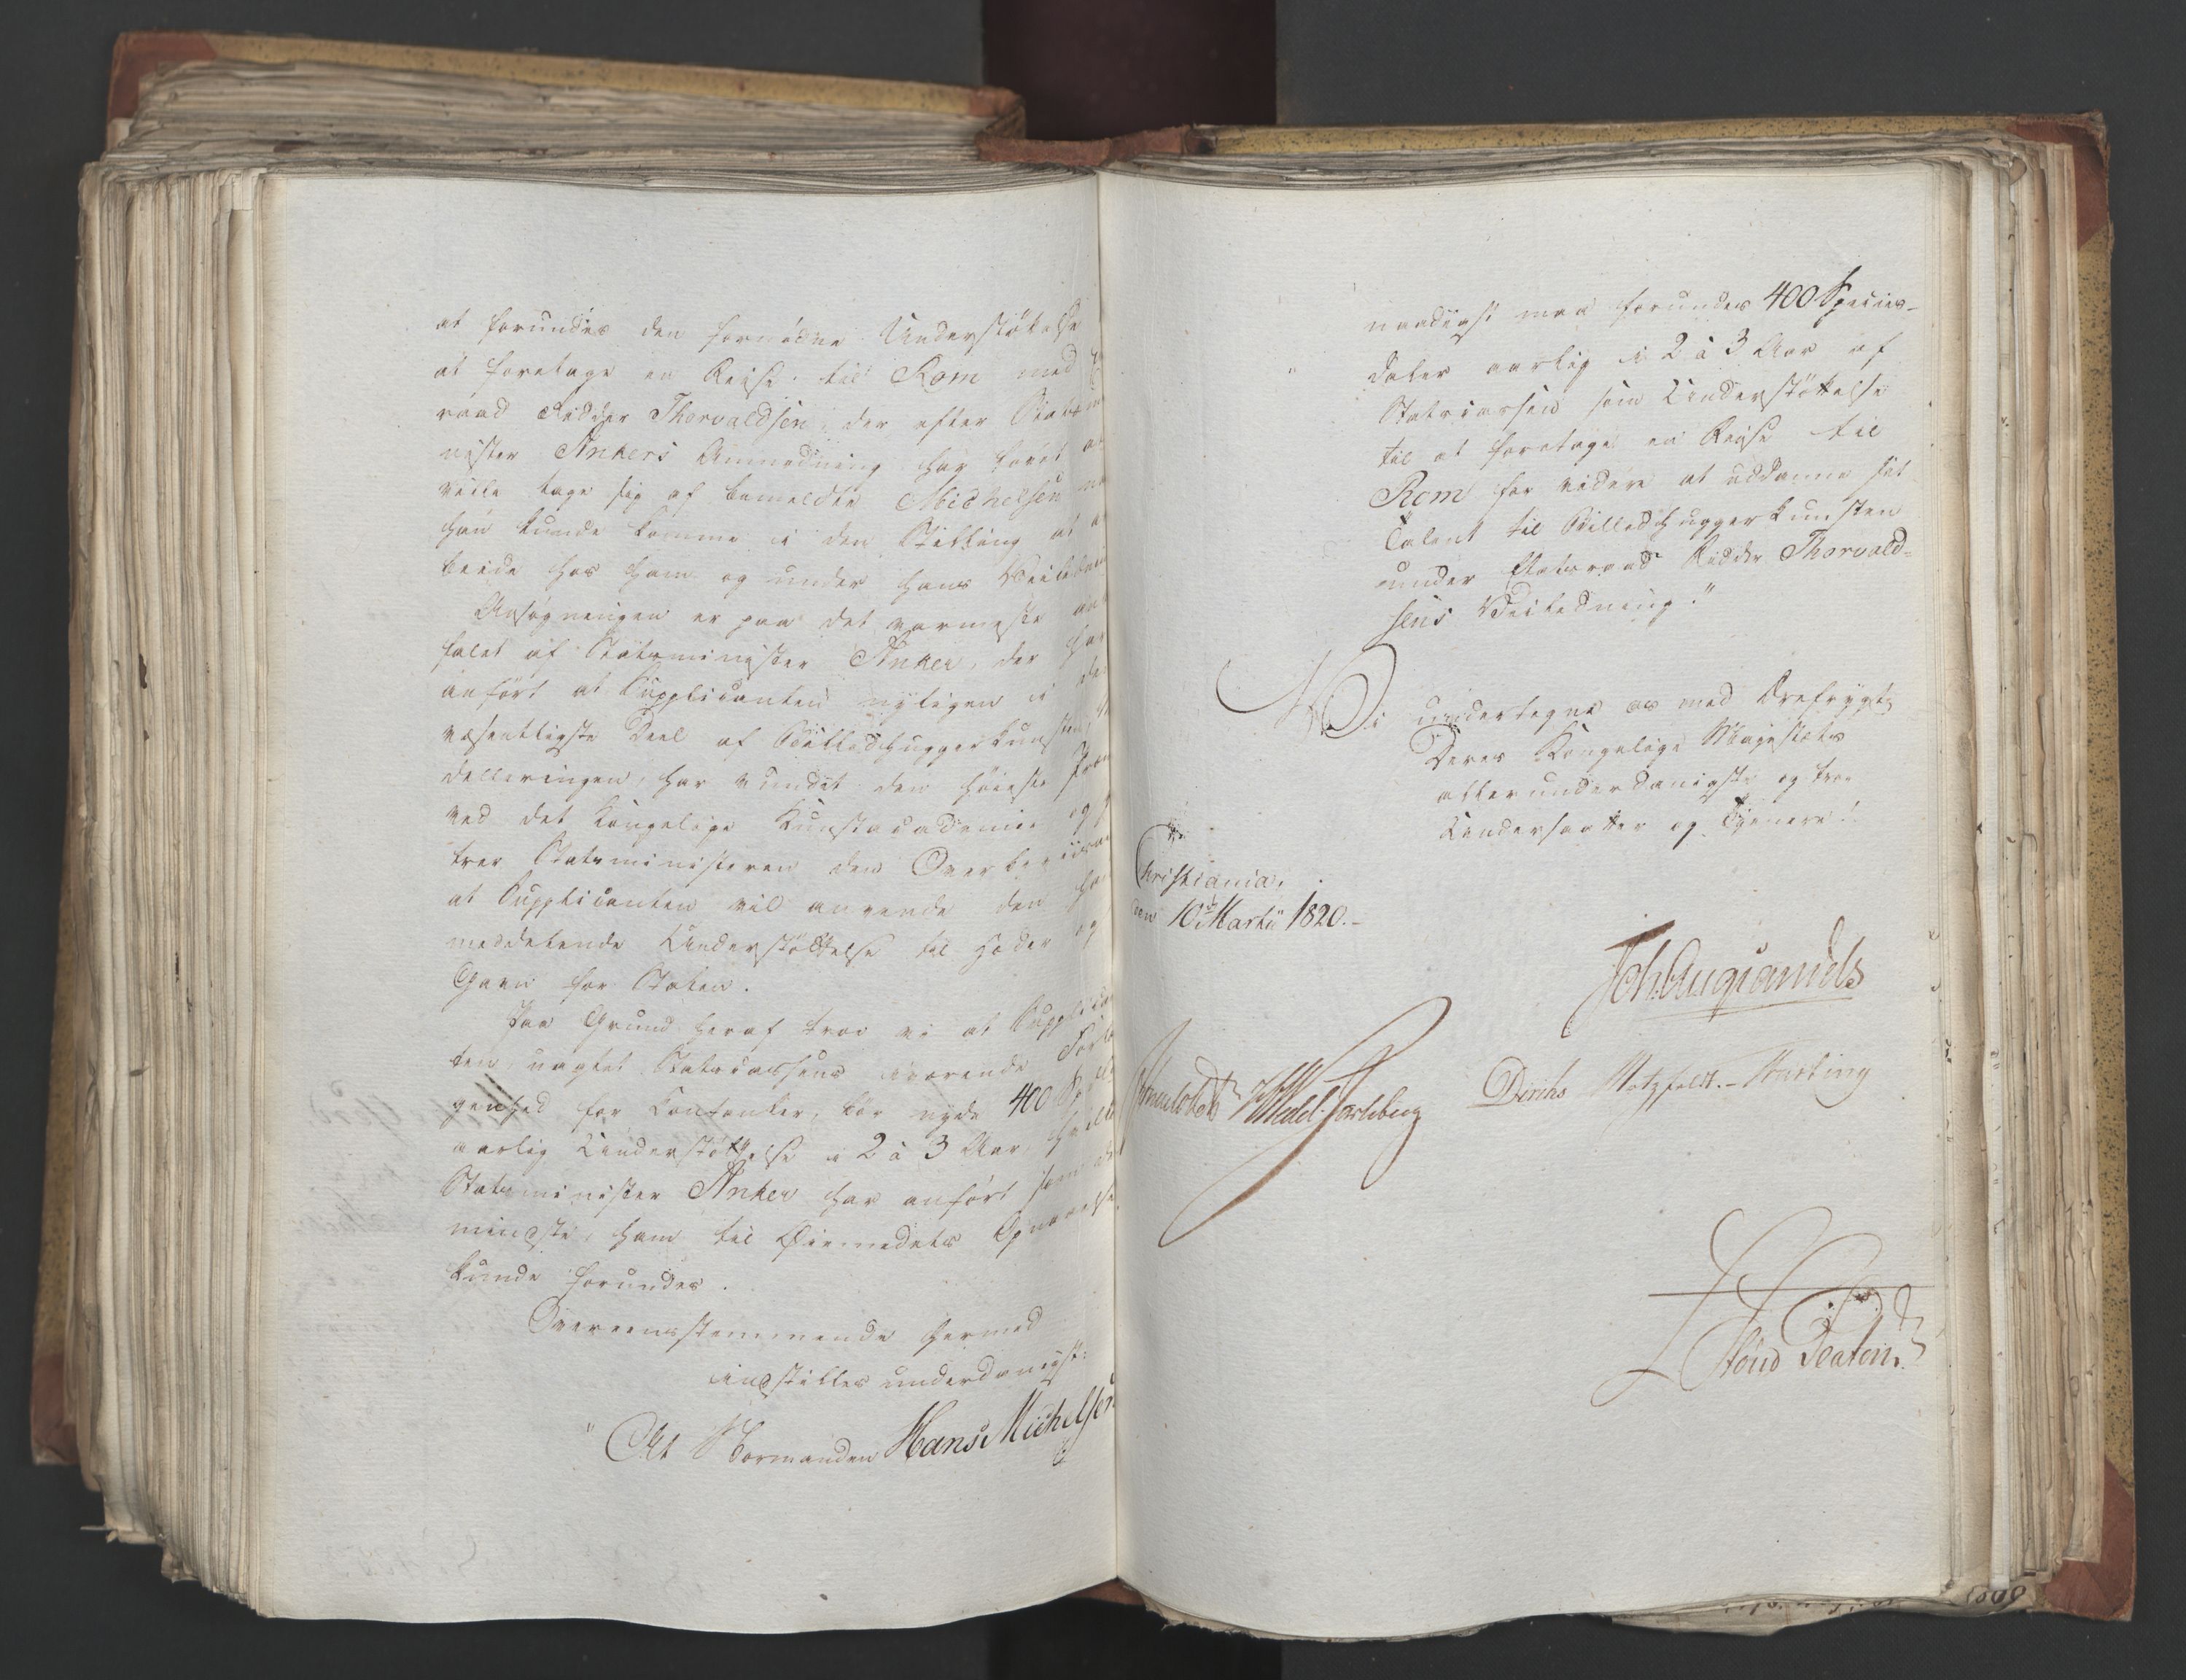 at forundes den fornødne Understøttelse
at foretage en Reise til Rom med
raad Ridder Thorvaldsen, der efter Statsmi
nister Ankers Anmodning har lovet at
ville tage sig af bemeldte Michelsen naar
han kunde komme i den Stilling at ar
beide hos ham og under hans Veiledning
Ansøgningen er paa det varmeste an
falet af Statsminister Anker, der har
anført at Supplicanten nyligen i den
væsentligste Deel af Billedhuggerkunsten, Mo
delleringen, har vundet den høieste Præm
ved det Kongelige Kunstacademie og y
trer Statsministeren den Overbeviisning
at Supplicanten vil anvende den ham
meddelende Understøttelse til Hæder og
Gavn for Staten.
Paa Grund heraf troe vi at Supplican
ten, uagtet Statscassens værende Forle
genhed for Contanter, bør nyde 400 Spdlr
aarlig Understøttelse i 2 à 3 Aar, hvilket
Statsminister Anker har anført som det
mindste, ham til Øiemedets Opnaaelse
kunde forundes.
Overeensstemmende hermed
indstilles underdanigst:
"At Normanden Hans Michelsen
naadigst maa forundes 400 Species-
daler aarlig i 2 à 3 Aar af
Statscassen som Understøttelse
til at foretage en Reise til
Rom for videre at uddanne sit
Talent til Billedhuggerkunsten
under Etatsraad Ridder Thorvald-
sens Veiledning."
Vi undertegne os med Ærefrygt
Deres Kongelige Majestæts
allerunderdanigste og troe
Undersaatter og Tjenere!
Christiania,
den 10d Martii 1820.-
Joh. Aug. Sandels
Sommerhielm HWedel-Jarlsberg Diriks Motzfeldt.- Fasting
Stoud Platou